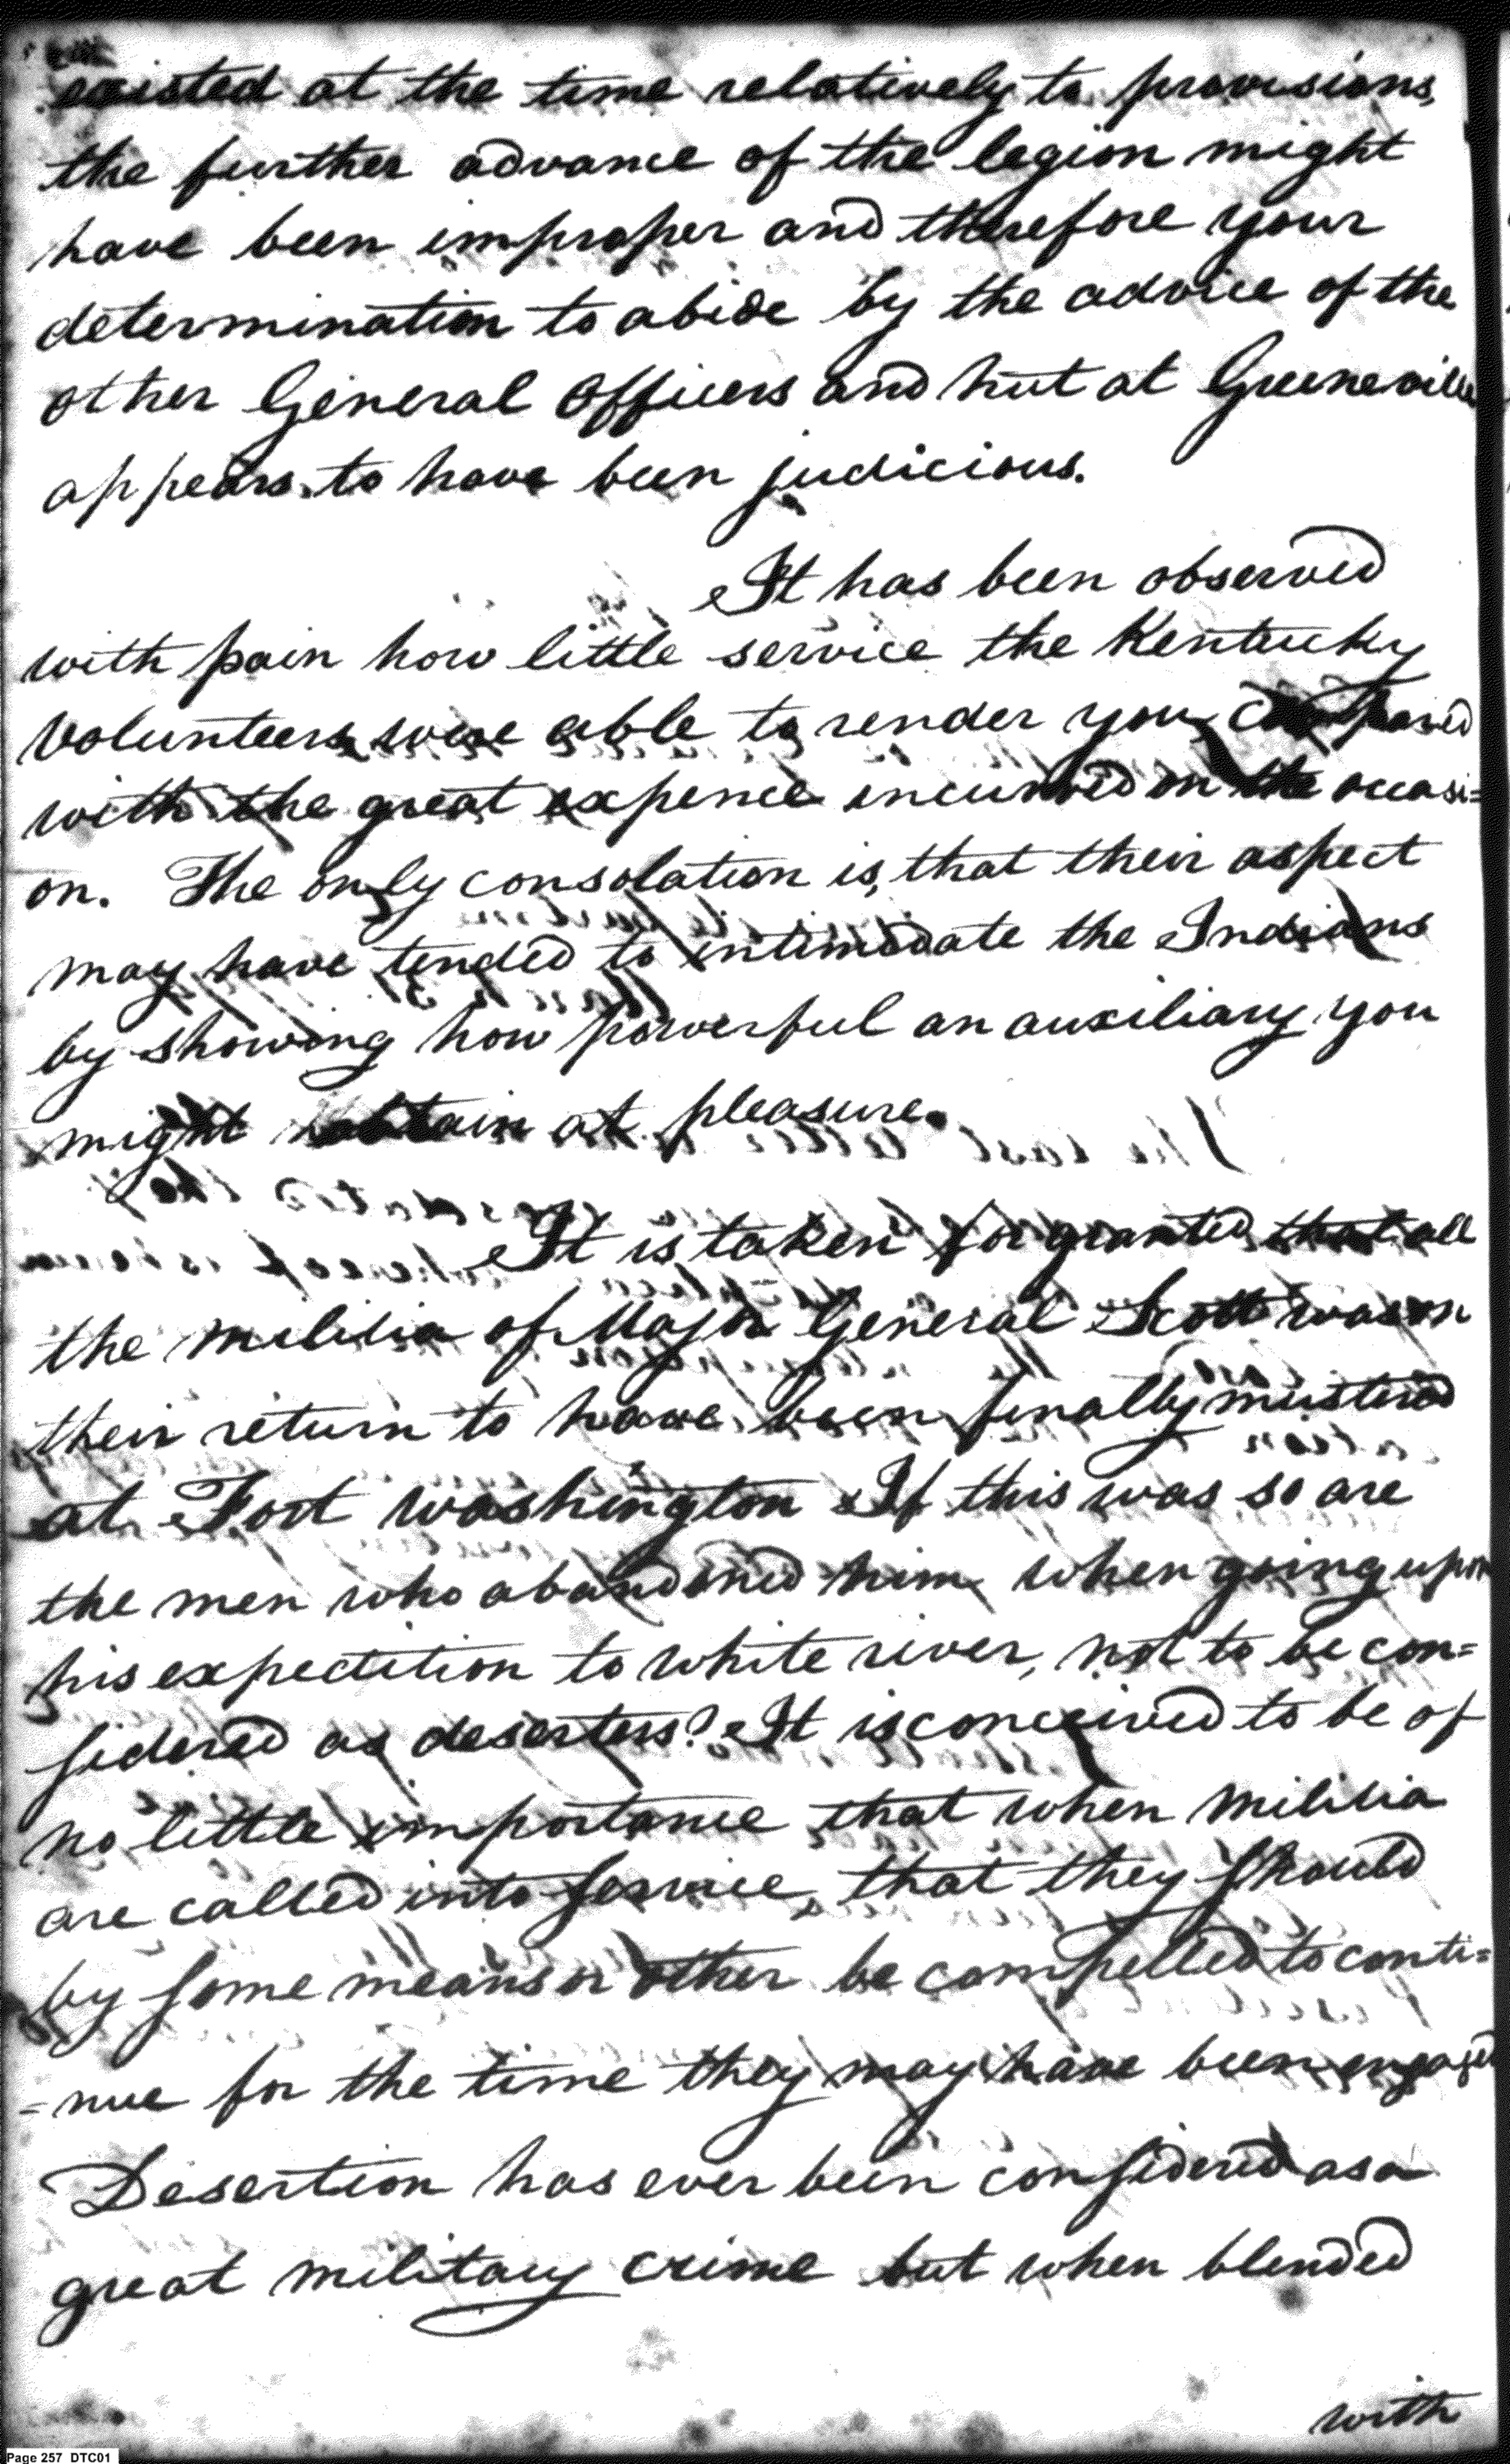 existed at the time relatively to provisions,
the further advance of the legion might
have been improper and therefore your
determination to abide by the advice of the
other General Officers and hut at Greeneville
appears to have been judicious.
It has been observed
with pain how little service the Kentucky
Volunteers were able to render you, compared
with the great expence incurred on the occasi=
on. The only consolation is, that their aspect
may have tended to intimidate the Indians
by showing how powerful an auxiliary you
might obtain at pleasure.
It is taken for granted that all
the militia of Major General Scott was on
their return to have been finally mustered
at Fort Washington If this was so are
the men who abandoned him when going upon
his expectition to White river, not to be con=
sidered as deserters? It is conceived to be of
no little importance that when militia
are called into service, that they should
by some means or other be compelled to conti=
=nue for the time they may have been engaged
Desertion has ever been considered as a
great military crime but when blended
with
Page 257 DTC01